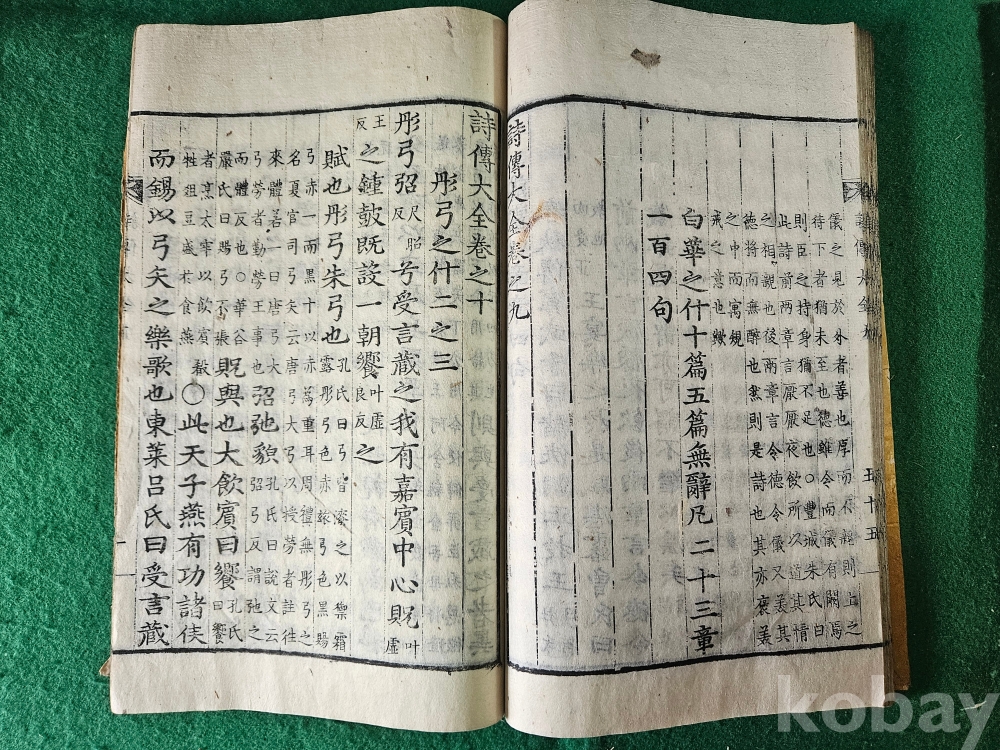 儀之見於外者善也厚而不親則上之
待下者猶未至也德雖令而儀有闕焉
則臣之持身猶不足也○豐城朱氏曰
此詩前兩章言厭厭夜飲所以道其情
之相親也後兩章言令德令儀又羙其
德將而無醉也然則是詩也其亦褒羙
之中而寓規
戒之意也歟
白華之什十篇五篇無辭凡二十三章
一百四句
詩傳大全卷之九
五十五
詩傳大全卷之十
彤弓之什二之三
彤弓弨尺昭反兮受言藏之我有嘉賓中心貺叶虛
王反之鍾鼓既設一朝饗叶虛良反之
賦也彤弓朱弓也孔氏曰弓皆漆之以禦霜露彤弓色赤玈弓色黑賜
弓赤一而黑十以赤爲重耳周禮無彤弓之名夏官司弓矢云唐弓大弓以授勞者註往
來體若一曰唐弓大弓勞者勤勞王事也弨弛貌孔氏曰說文云弨弓反謂弛之
而體反也○華谷嚴氏曰賜弓不張貺與也大飲賓曰饗孔氏曰饗
者烹太牢以飲賓獻牲俎豆盛於食燕○此天子燕有功諸侯
而錫以弓矢之樂歌也東萊呂氏曰受言藏
kobay